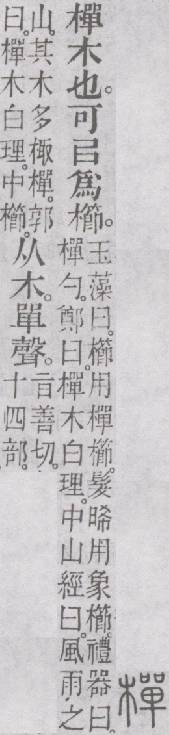 樿
樿木也。可㠯爲櫛。
玉藻曰。櫛用樿櫛。髮晞用象櫛。禮器曰。
樿勺。鄭曰。樿木白理。中山經曰。風雨之
山。其木多棷樿。郭
曰。樿木白理。中櫛。
从木。單聲。
旨善切。
十四部。